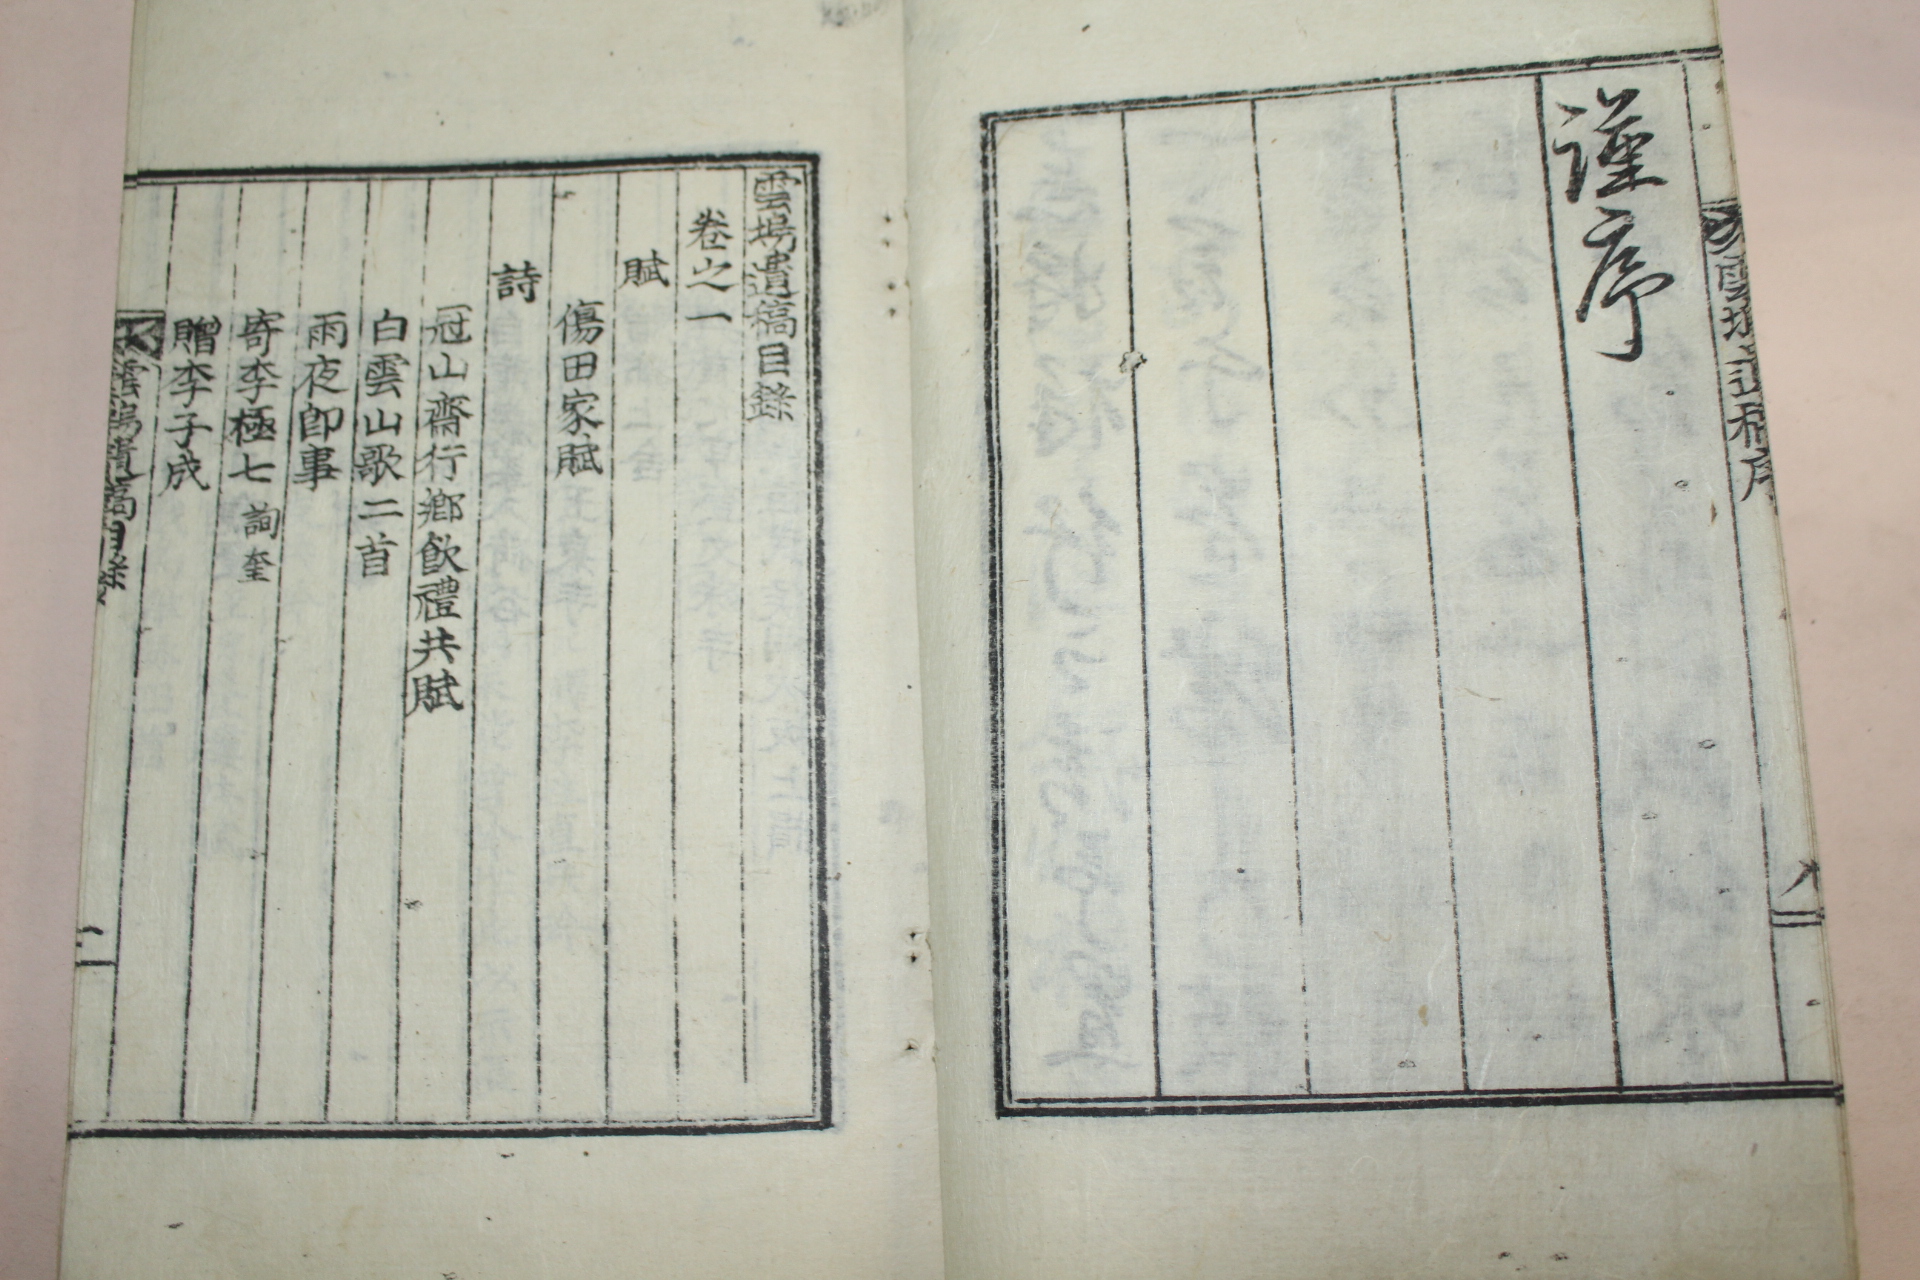 謹序
雲塢遺稿目錄
卷之一
賦
傷田家賦
詩
冠山齋行鄕飮禮共賦
白雲山歌二首
雨夜卽事
寄李極七 詢奎
贈李子成
雲塢遺稿目錄